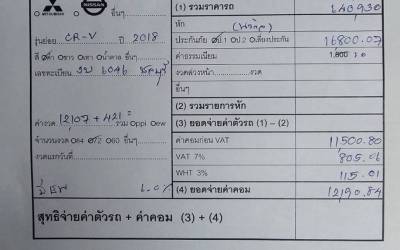 MITSUBISHI NISSAN อื่นๆ
(1) รวมราคารถ 640,930
หัก
รุ่นย่อย CR-V ปี 2018
ประกันภัย ป.1 ป.2 เลี่ยงประกัน 16800.07
สี ดำ ขาว เทา น้ำตาล อื่นๆ
ค่าธรรมเนียม 1,800
เลขทะเบียน 6046 ชลบุรี
งวดล่วงหน้า งวด
อื่นๆ
(2) รวมรายการหัก
ค่างวด 12107 + 421 = รวม ppi ew
(3) ยอดจ่ายค่าตัวรถ (1) – (2)
จำนวนงวด 84 60 อื่นๆ
ค่าคอมก่อน VAT 11,500.80
งวดแรกวันที่
VAT 7% 805.06
WHT 3% 115.01
(4) ยอดจ่ายค่าคอม 12,190.84
สุทธิจ่ายค่าตัวรถ + ค่าคอม (3) + (4)